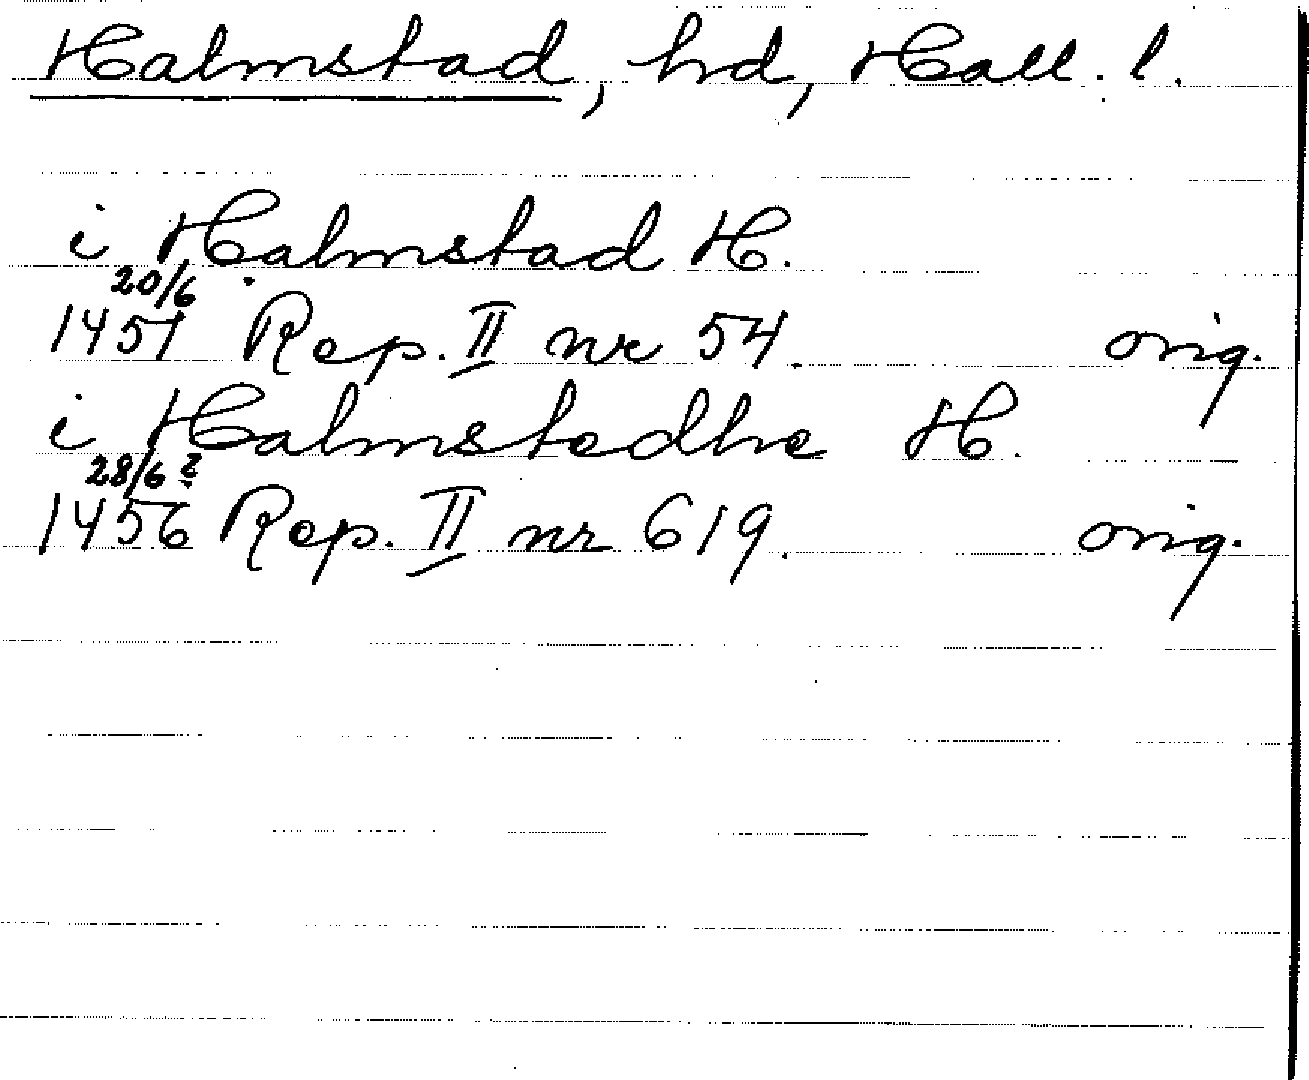 Halmstad, hd, Hall. l.
i Halmstad H.
20/6
1451 Rep. II nr 54. orig.
i Halmstedhe H.
28/6 ?
1456 Rep. II nr 619. orig.